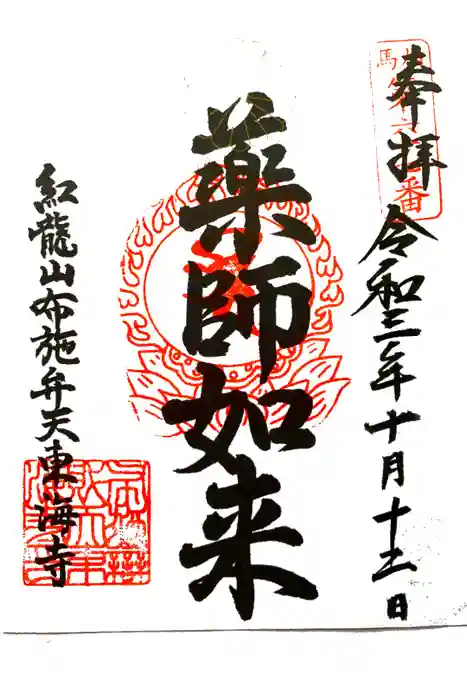 奉拝 令和三年十月十五日
薬師如来
紅龍山布施弁天東海寺